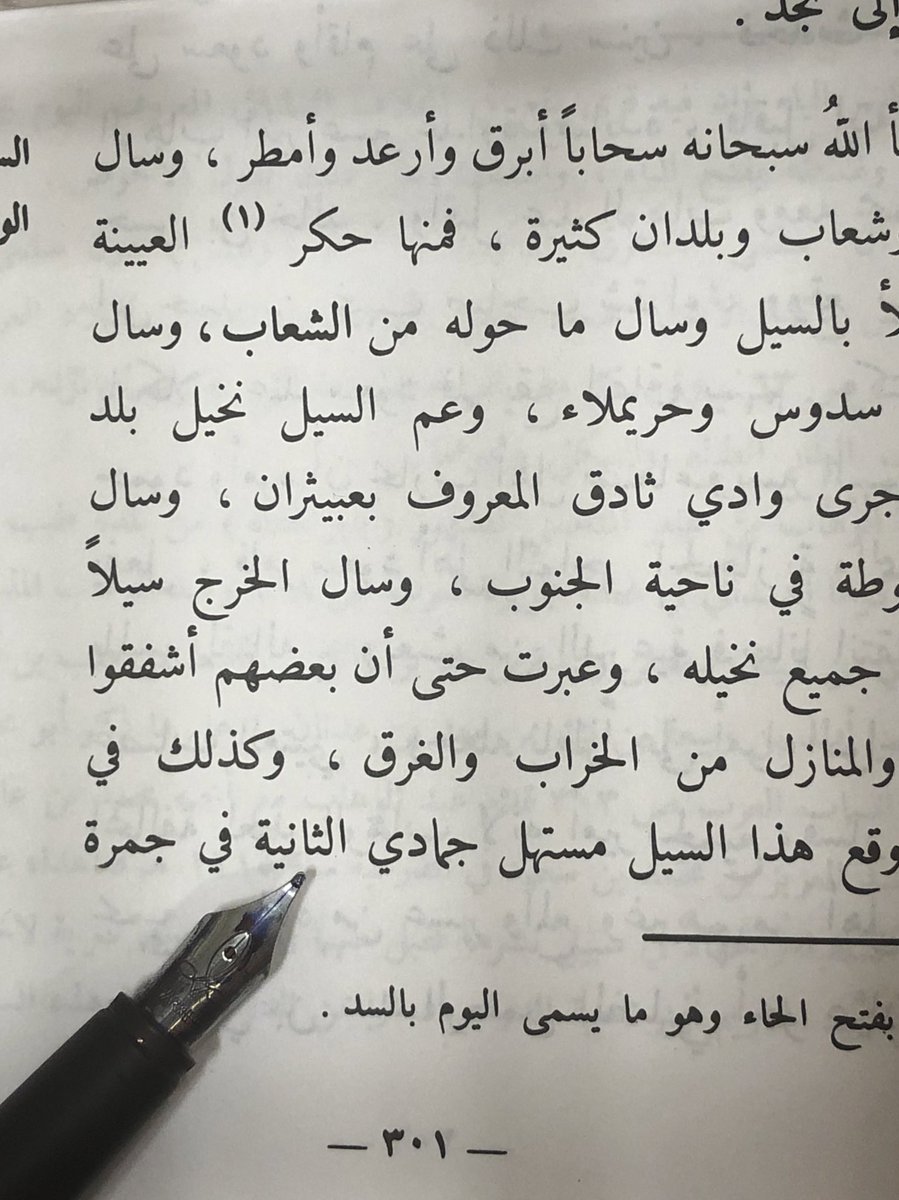 إلى نجد .
الله سبحانه سحاباً أبرق وأرعد وأمطر ، وسال
وشعاب وبلدان كثيرة ، فمنها حكر (١) العيينة
بالسيل وسال ما حوله من الشعاب ، وسال
سدوس وحريملاء ، وعم السيل نخيل بلد
جرى وادي ثادق المعروف بعبيثران ، وسال
في ناحية الجنوب ، وسال الخرج سيلاً
جميع نخيله ، وعبرت حتى أن بعضهم أشفقوا
والمنازل من الخراب والغرق ، وكذلك في
وقع هذا السيل مستهل جمادي الثانية في جمرة
بفتح الحاء وهو ما يسمى اليوم بالسد .
— ٣٠١ —